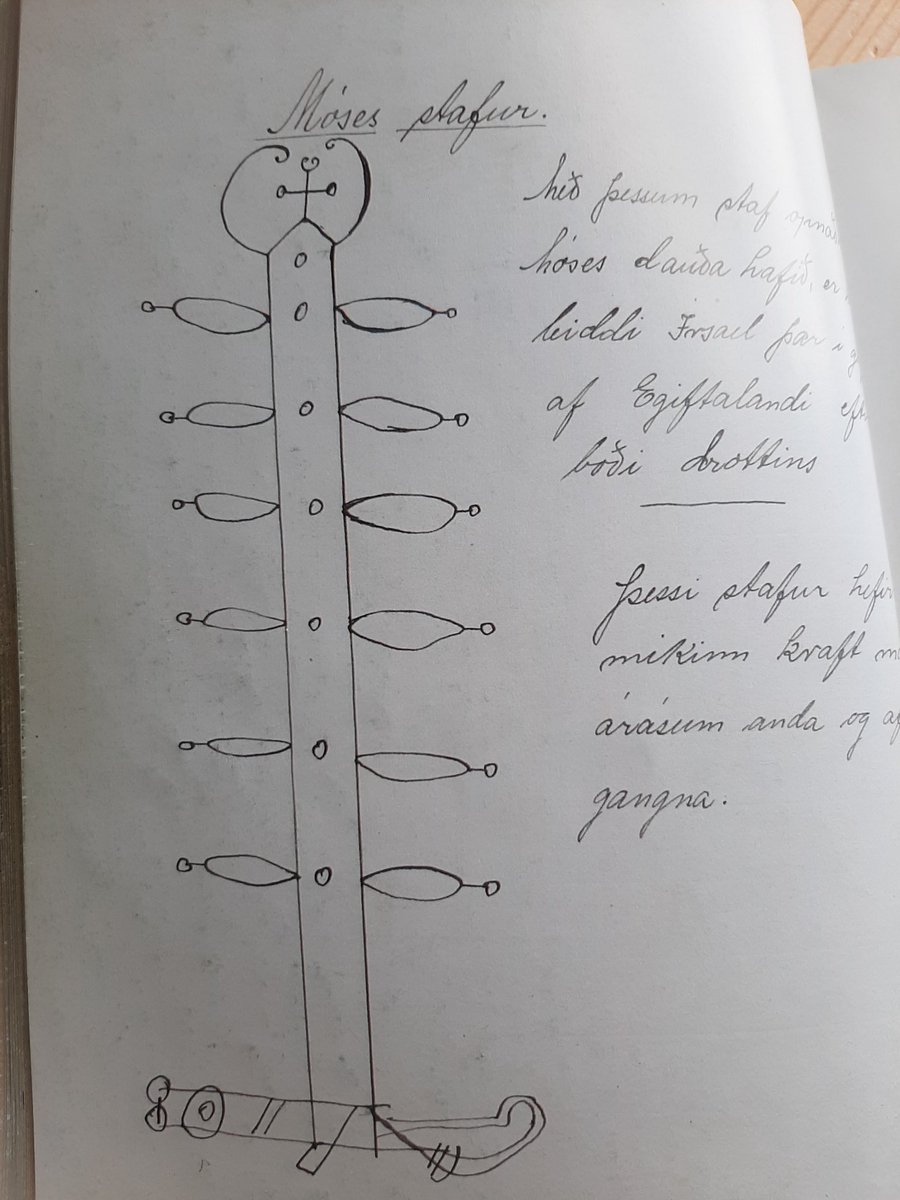 Móses stafur.
Með þessum staf opnaði
Móses dauða hafið, er
leiddi Írsael þar í
af Egiftalandi
boði drottins
Þessi stafur hefir
mikinn kraft
árásum anda og
gangna.